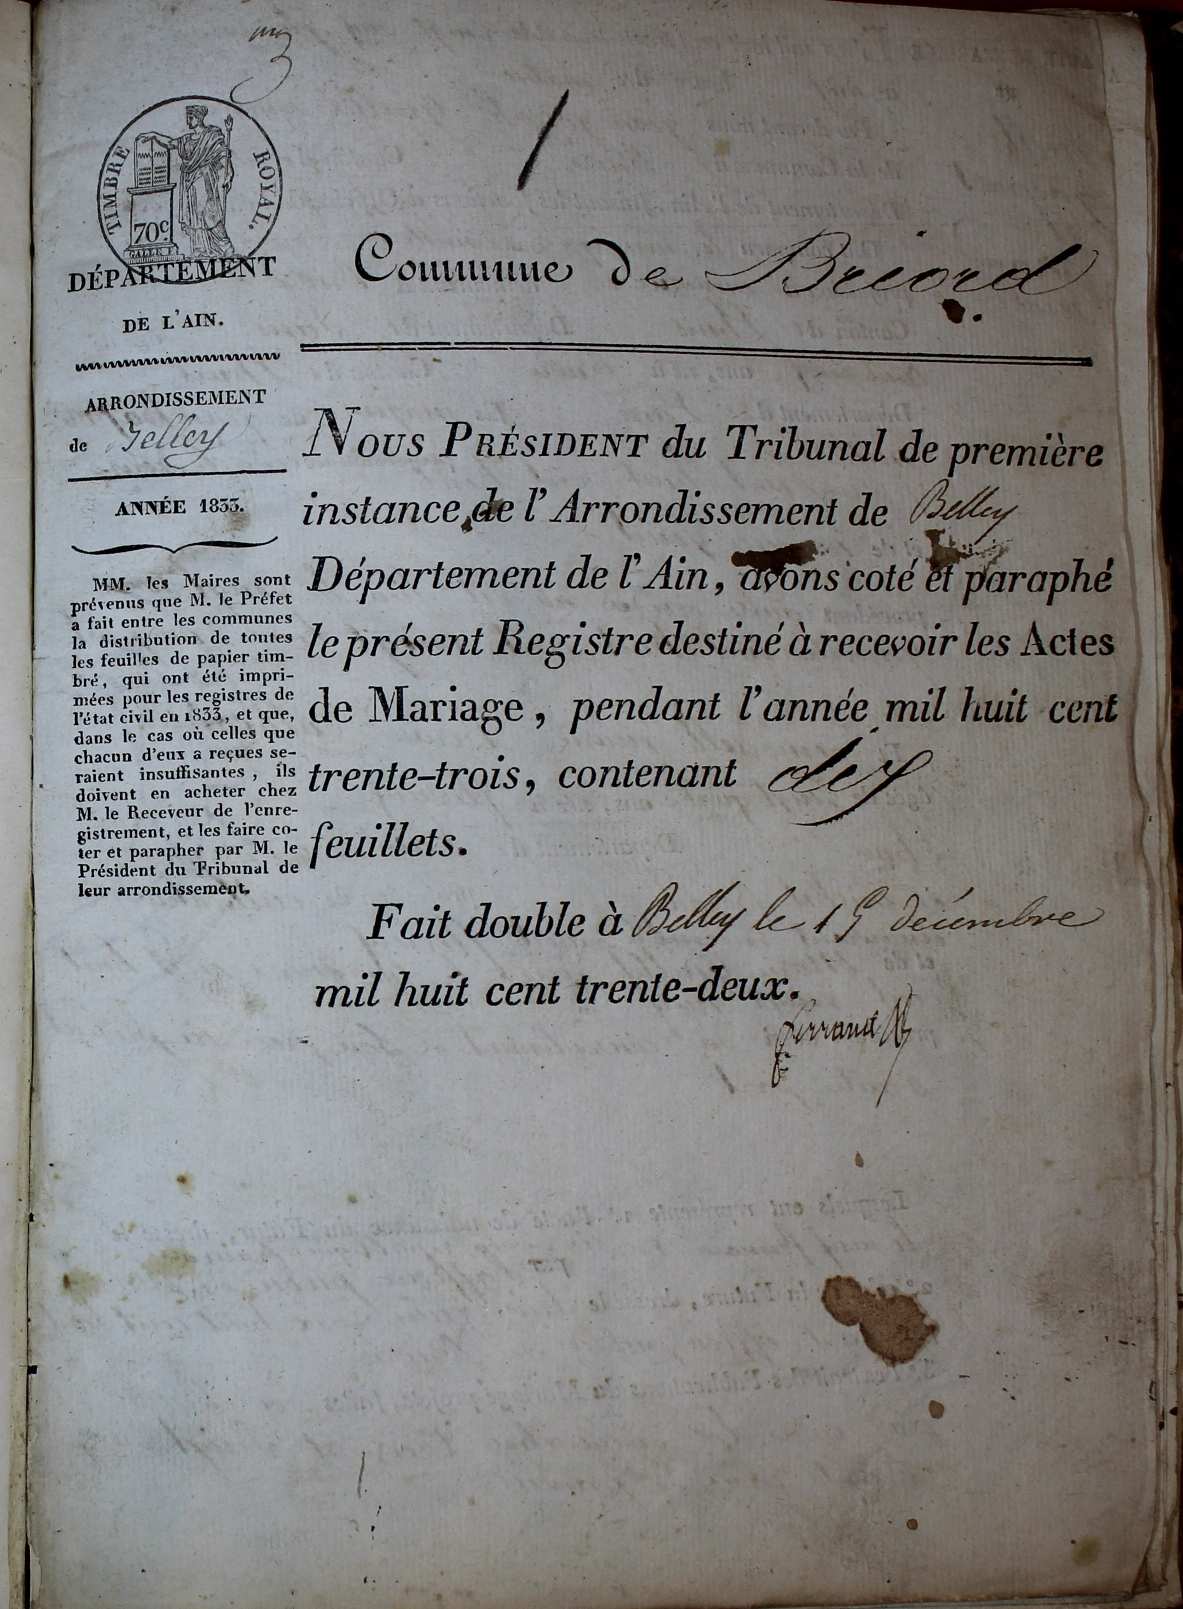 TIMBRE ROYAL.
70c.
GALLE F.
DÉPARTEMENT
DE L'AIN.
ARRONDISSEMENT
de Belley
ANNÉE 1833.
MM. les Maires sont
prévenus que M. le Préfet
a fait entre les communes
la distribution de toutes
les feuilles de papier tim-
bré, qui ont été impri-
mées pour les registres de
l'état civil en 1833, et que,
dans le cas où celles que
chacun d'eux a reçues se-
raient insuffisantes, ils
doivent en acheter chez
M. le Receveur de l'enre-
gistrement, et les faire co-
ter et parapher par M. le
Président du Tribunal de
leur arrondissement.
Commune de Briord
NOUS PRÉSIDENT du Tribunal de première
instance de l'Arrondissement de Belley
Département de l'Ain, avons coté et paraphé
le présent Registre destiné à recevoir les Actes
de Mariage, pendant l'année mil huit cent
trente-trois, contenant dix
feuillets.
Fait double à Belley le 15 décembre
mil huit cent trente-deux.